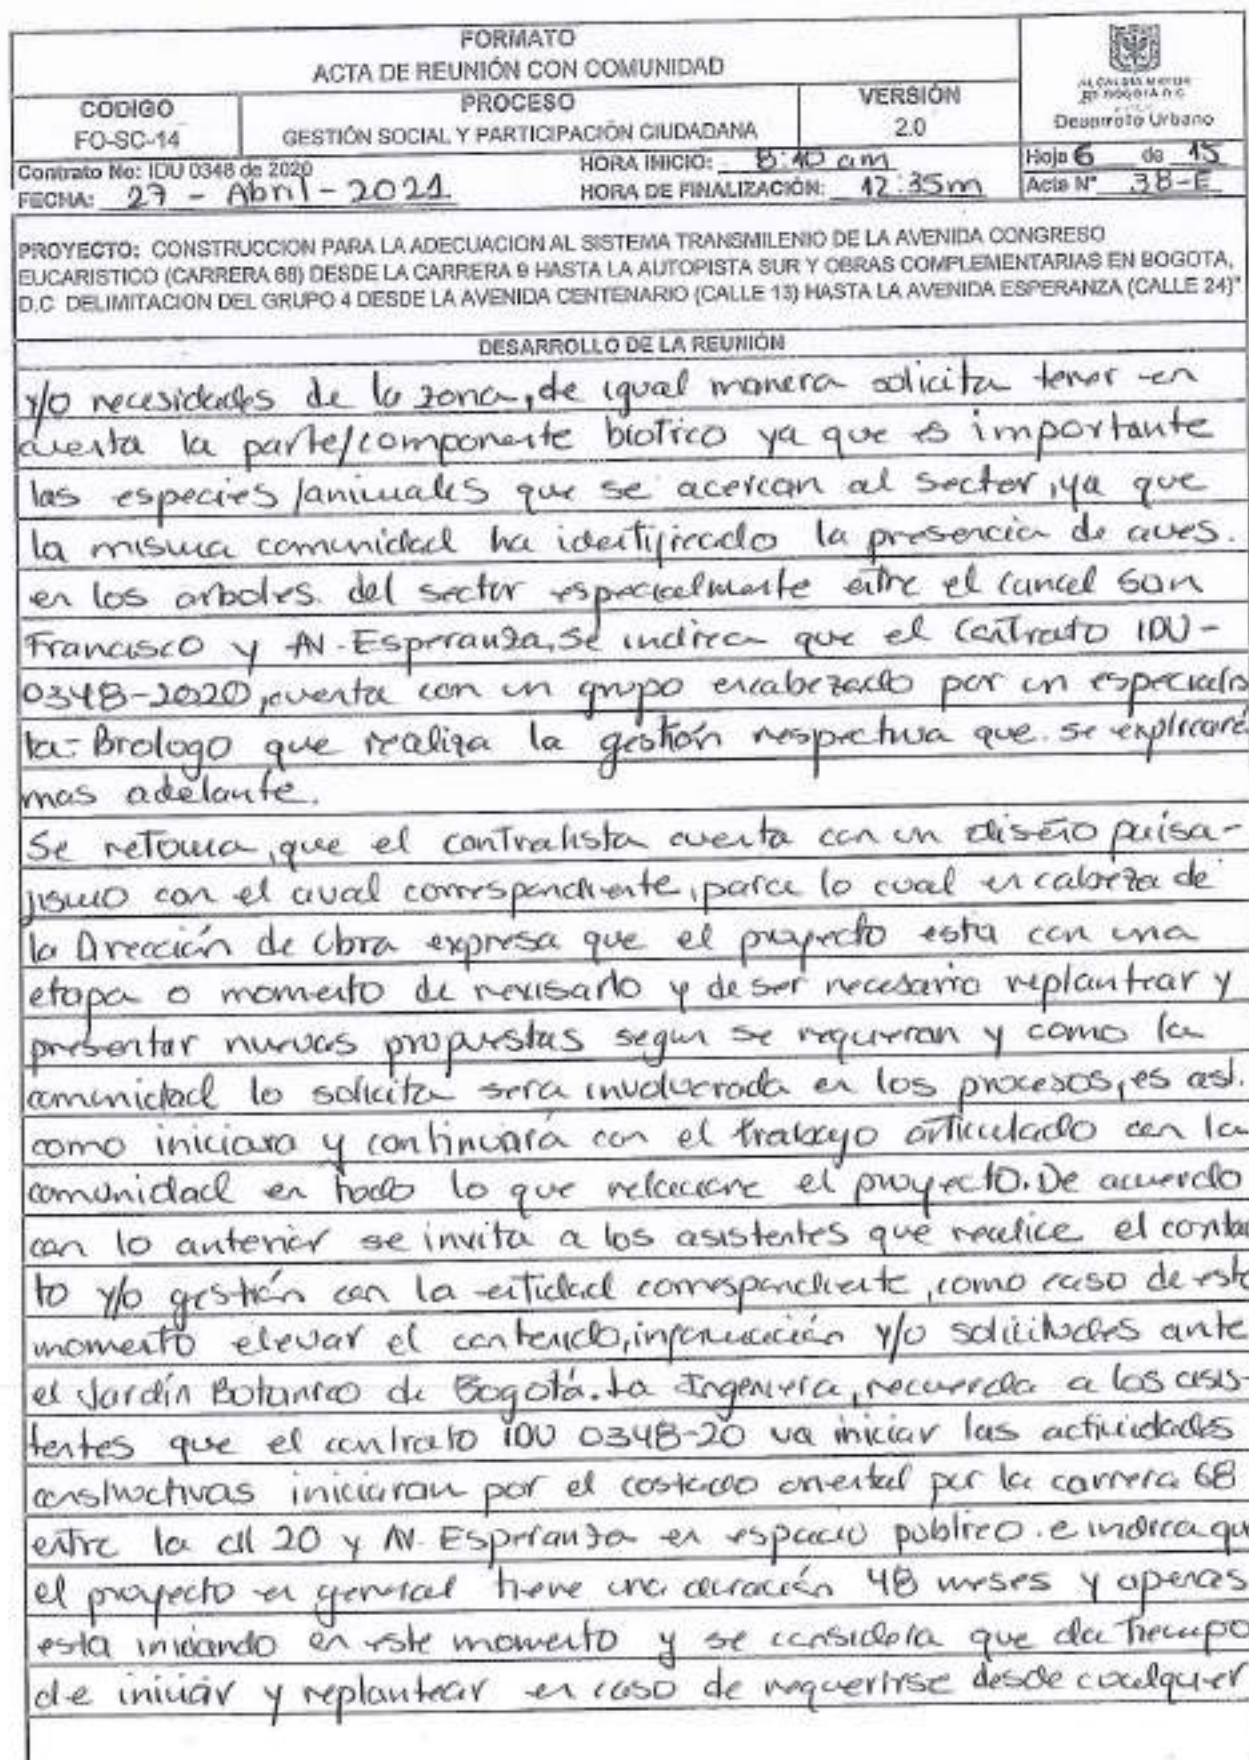 FORMATO
ACTA DE REUNIÓN CON COMUNIDAD
CÓDIGO
FO-SC-14
PROCESO
GESTIÓN SOCIAL Y PARTICIPACIÓN CIUDADANA
VERSIÓN
2.0
ALCALDÍA MAYOR
DE BOGOTÁ D.C.
Desarrollo Urbano
Contrato No: IDU 0348 de 2020
FECHA: 27 - Abril - 2021
HORA INICIO: 8:10 am
HORA DE FINALIZACIÓN: 12:35m
Hoja 6 de 15
Acta N° 38-E
PROYECTO: CONSTRUCCION PARA LA ADECUACION AL SISTEMA TRANSMILENIO DE LA AVENIDA CONGRESO
EUCARISTICO (CARRERA 68) DESDE LA CARRERA 9 HASTA LA AUTOPISTA SUR Y OBRAS COMPLEMENTARIAS EN BOGOTA,
D.C DELIMITACION DEL GRUPO 4 DESDE LA AVENIDA CENTENARIO (CALLE 13) HASTA LA AVENIDA ESPERANZA (CALLE 24)"
DESARROLLO DE LA REUNIÓN
y/o necesidades de la zona, de igual manera solicita tener en
cuenta la parte/componente biotico ya que es importante
las especies/animales que se acercan al sector, ya que
la misma comunidad ha identificado la presencia de aves.
en los arboles. del sector especialmente entre el Canal San
Francisco y AV. Esperanza, se indica que el contrato IDU-
0348-2020, cuenta con un grupo encabezado por un especialis
ta- Biologo que realiza la gestión respectiva que se explicará
mas adelante.
Se retoma, que el contratista cuenta con un diseño paisa-
jismo con el aval correspondiente, para lo cual en cabeza de
la Dirección de Obra expresa que el proyecto esta con una
etapa o momento de revisarlo y de ser necesario replantear y
presentar nuevas propuestas segun se requieran y como la
comunidad lo solicita sera involucrada en los procesos, es asi.
como iniciara y continuará con el trabajo articulado con la
comunidad en todo lo que relacione el proyecto. De acuerdo
con lo anterior se invita a los asistentes que realice el contac
to y/o gestión con la entidad correspondiente, como caso de este
momento elevar el contenido, información y/o solicitudes ante
el Jardín Botanico de Bogotá. La Ingeniera, recuerda a los asis-
tentes que el contrato IDU 0348-20 va iniciar las actividades
constructivas iniciaran por el costado oriental por la carrera 68
entre la cll 20 y AV. Esperanza en espacio publico. e indica que
el proyecto en general tiene una duración 48 meses y apenas
esta iniciando en este momento y se considera que da tiempo
de iniciar y replantear en caso de requerirse desde cualquier